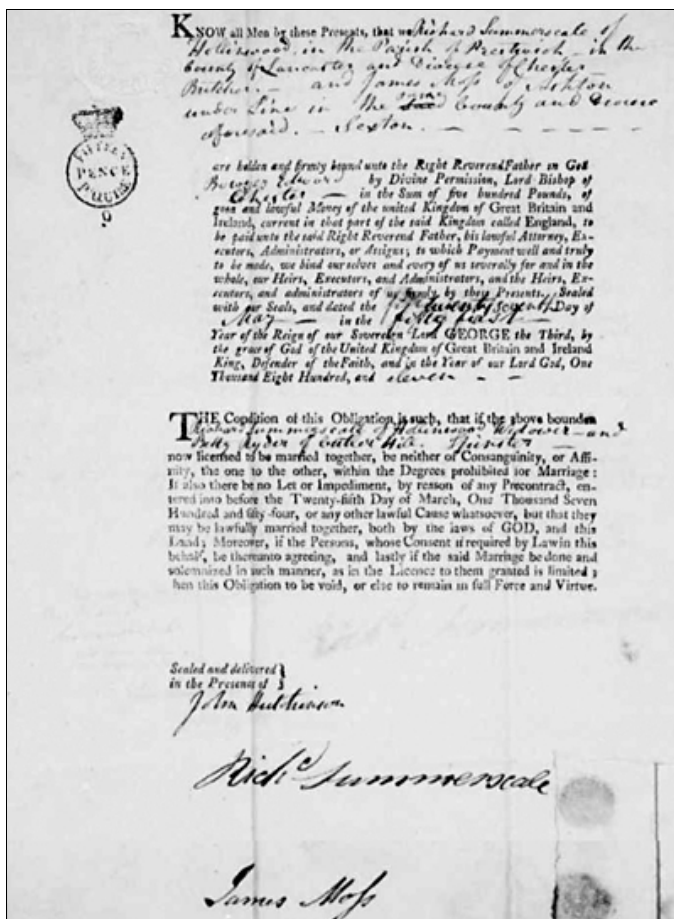 KNOW all Men by these Presents, that we Richard Summerscale of
Hollinwood in the Parish of Prestwich - in the
County of Lancaster and Diocese of Chester
Butcher - and James Moss of Ashton
under Line in the same County and Diocese
aforesaid. - Sexton. - - - - - -
FIFTEEN
PENCE
P QUIRE
9
are holden and firmly bound unto the Right Reverend Father in God
Bowyer Edward by Divine Permission, Lord Bishop of
Chester - in the Sum of five hundred Pounds, of
good and lawful Money of the united Kingdom of Great Britain and
Ireland, current in that part of the said Kingdom called England, to
be paid unto the said Right Reverend Father, his lawful Attorney, Ex-
ecutors, Administrators, or Assigns; to which Payment well and truly
to be made, we bind ourselves and every of us severally for and in the
whole, our Heirs, Executors, and Administrators, and the Heirs, Ex-
ecutors, and administrators of us by these Presents. Sealed
with our Seals, and dated the twenty seventh Day of
May - in the fifty first
Year of the Reign of our Sovereign Lord GEORGE the Third, by
the grace of God of the United Kingdom of Great Britain and Ireland
King, Defender of the Faith, and in the Year of our Lord God, One
Thousand Eight Hundred, and eleven - -
THE Condition of this Obligation is such, that if the above bounden
Richard Summerscale of Hollinwood Widower - and
Betty Ryder of Hill. Spinster -
now licensed to be married together, be neither of Consanguinity, or Affi-
nity, the one to the other, within the Degrees prohibited for Marriage:
If also there be no Let or Impediment, by reason of any Precontract, en-
tered into before the Twenty-fifth Day of March, One Thousand Seven
Hundred and fifty-four, or any other lawful Cause whatsoever, but that they
may be lawfully married together, both by the laws of GOD, and this
Land; Moreover, if the Persons, whose Consent is required by Law in this
behalf, be thereunto agreeing, and lastly if the said Marriage be done and
solemnized in such manner, as in the Licence to them granted is limited;
hen this Obligation to be void, or else to remain in full Force and Virtue.
Sealed and delivered }
in the Presence of }
John Hutchinson
Richd Summerscale
James Moss